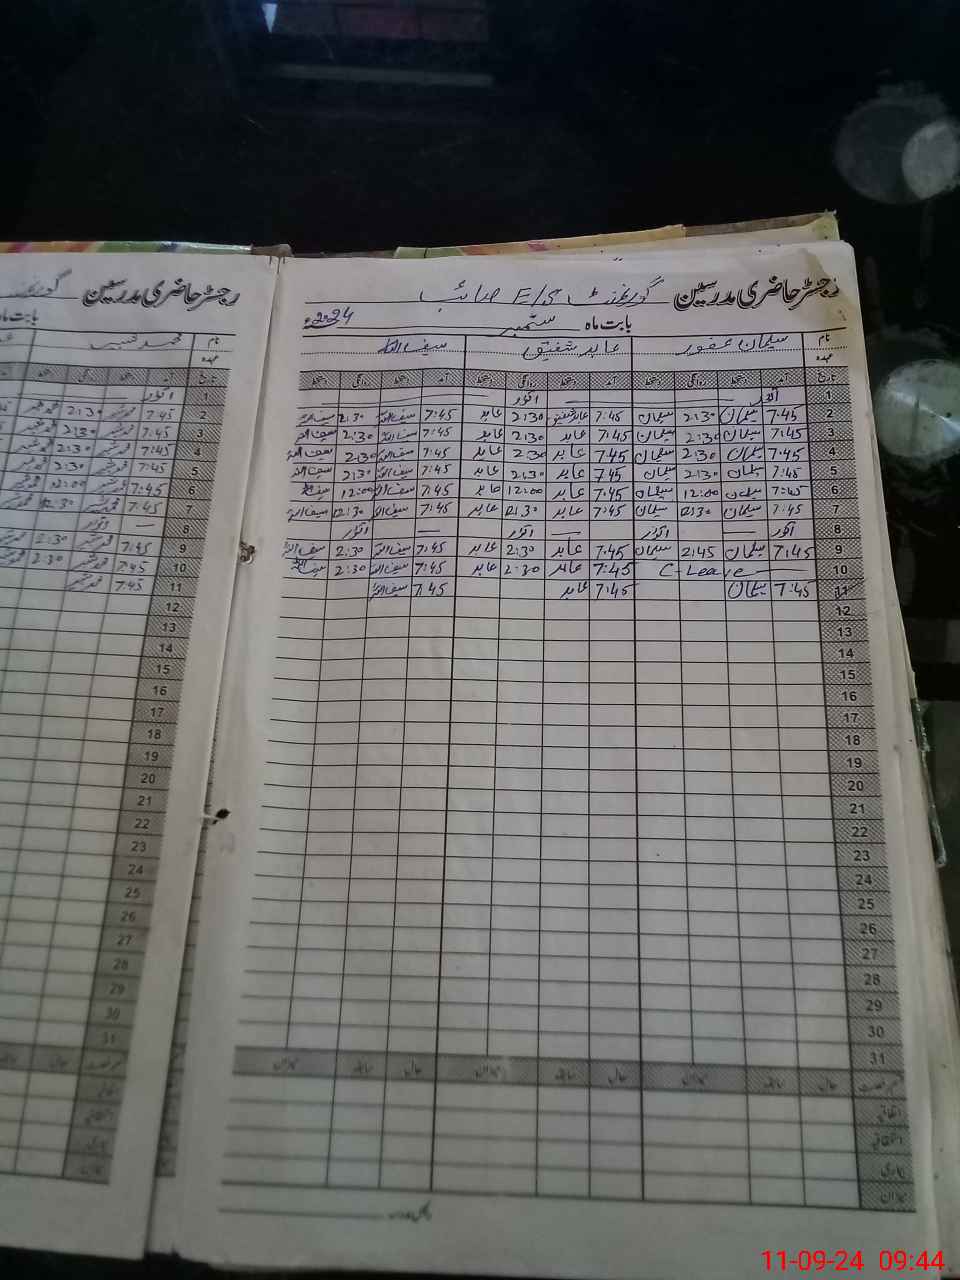 رجسٹر حاضری مدرسین گورنمنٹ
بابت ماہ
نام محمد
عہدہ
تاریخ آمد دستخط روانگی دستخط
1 اتوار
2 7:45 2:30
3 7:45 2:30
4 7:45 2:30
5 7:45 2:30
6 7:45 12:00
7 7:45 12:30
8 — اتوار
9 7:45 2:30
10 7:45 2:30
11 7:45
12
13
14
15
16
17
18
19
20
21
22
23
24
25
26
27
28
29
30
31
رجسٹر حاضری مدرسین گورنمنٹ
بابت ماہ ستمبر 2024ء
نام سلمان غفور عابد شفیق سیف اللہ
عہدہ
تاریخ آمد دستخط روانگی دستخط آمد دستخط روانگی دستخط آمد دستخط روانگی دستخط
1 اتوار — اتوار —
2 7:45 سلمان 2:30 سلمان 7:45 عابد شفیق 2:30 عابد 7:45 سیف اللہ 2:30 سیف اللہ
3 7:45 سلمان 2:30 سلمان 7:45 عابد 2:30 عابد 7:45 سیف اللہ 2:30 سیف اللہ
4 7:45 سلمان 2:30 سلمان 7:45 عابد 2:30 عابد 7:45 سیف اللہ 2:30 سیف اللہ
5 7:45 سلمان 2:30 سلمان 7:45 عابد 2:30 عابد 7:45 سیف اللہ 2:30 سیف اللہ
6 7:45 سلمان 12:00 سلمان 7:45 عابد 12:00 عابد 7:45 سیف اللہ 12:00 سیف اللہ
7 7:45 سلمان 12:30 سلمان 7:45 عابد 12:30 عابد 7:45 سیف اللہ 12:30 سیف اللہ
8 اتوار — اتوار — اتوار — اتوار
9 7:45 سلمان 2:45 سلمان 7:45 عابد 2:30 عابد 7:45 سیف اللہ 2:30 سیف اللہ
10 C-Leave 7:45 عابد 2:30 عابد 7:45 سیف اللہ 2:30 سیف اللہ
11 7:45 سلمان 7:45 عابد 7:45 سیف اللہ
12
13
14
15
16
17
18
19
20
21
22
23
24
25
26
27
28
29
30
31
حال سابقہ میزان حال سابقہ میزان حال سابقہ میزان
اتفاقیہ
استحقاقی
بیماری
میزان
11-09-24 09:44